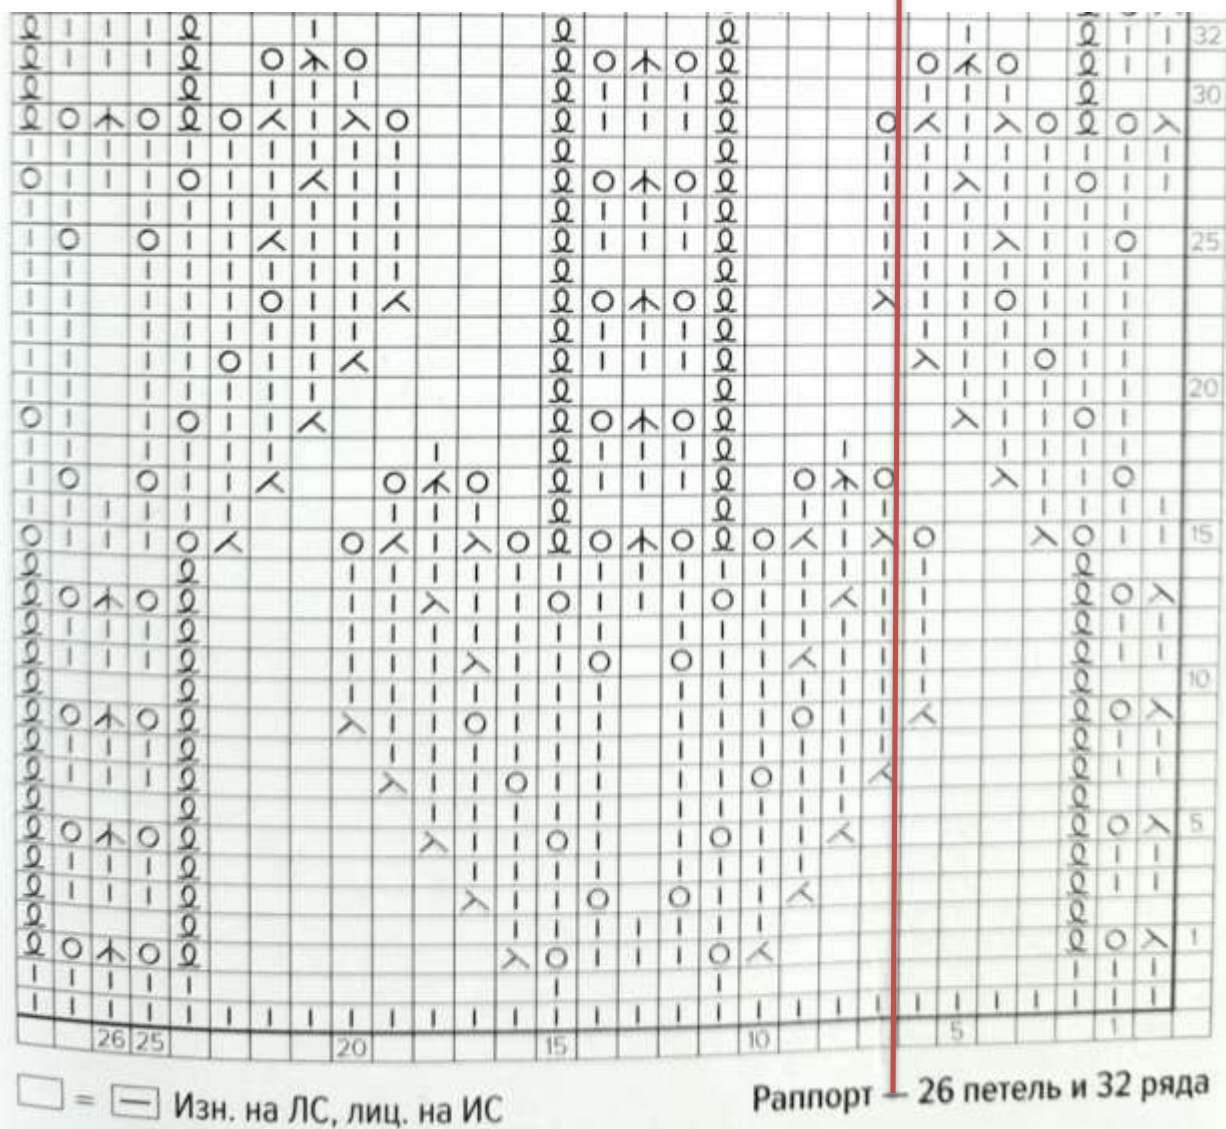 32
30
25
20
15
10
5
1
26 25 20 15 10 5 1
= Изн. на ЛС, лиц. на ИС
Раппорт – 26 петель и 32 ряда